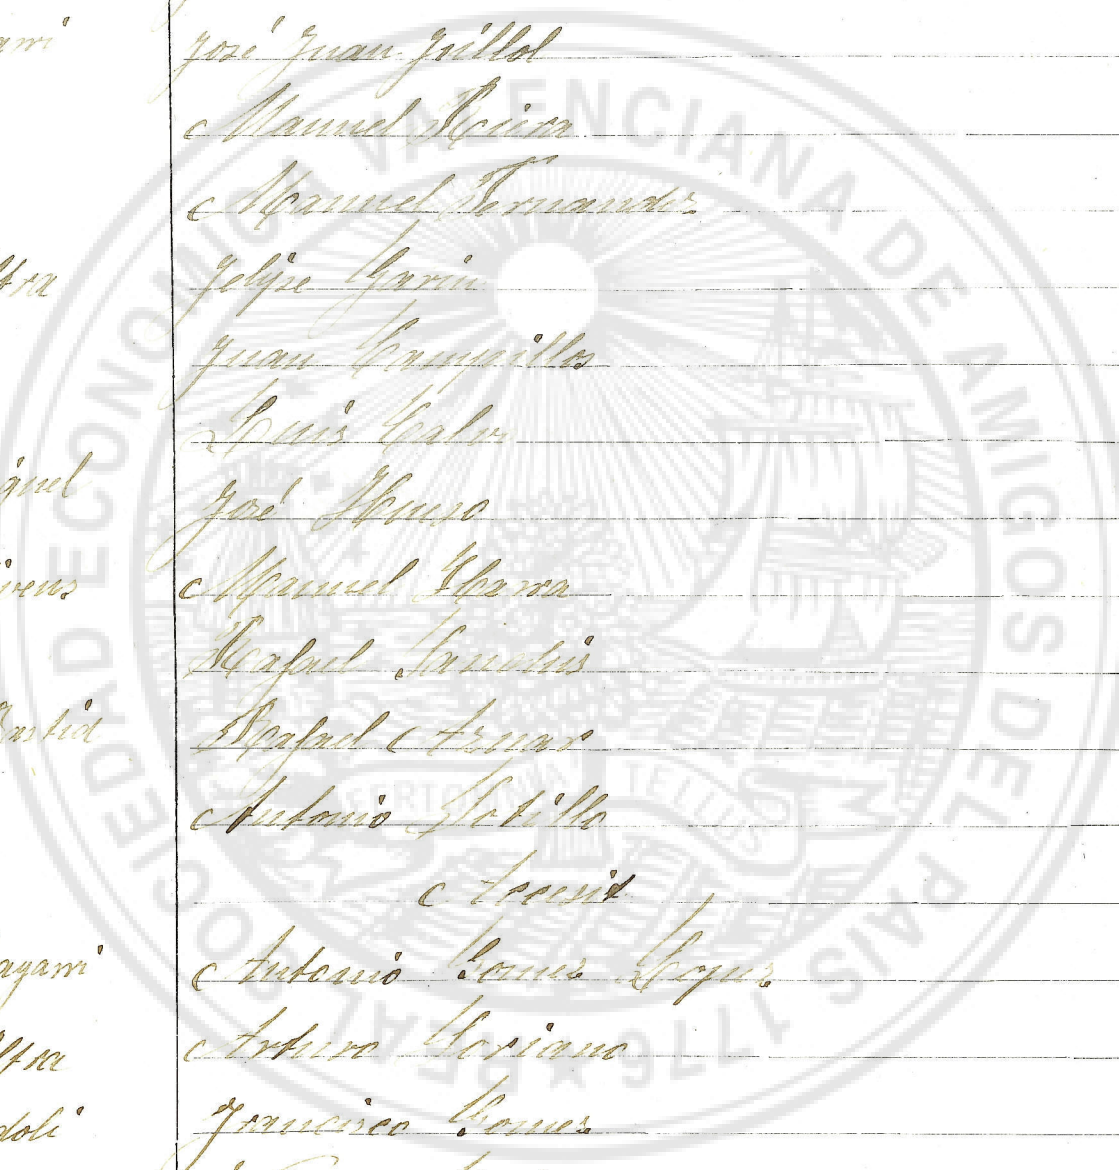 José Juan Grillol
Manuel
Manuel Fernandez
Felipe Garin
Juan Campillos
Luis Calvo
José Hueso
Manuel Ibarra
Rafael Sanchis
Rafael Aznar
Antonio Sotillo
Accesit
Antonio Gomez Lopez
Arturo Soriano
Francisco Gomez
REAL SOCIEDAD ECONOMICA VALENCIANA DE AMIGOS DEL PAIS 1776